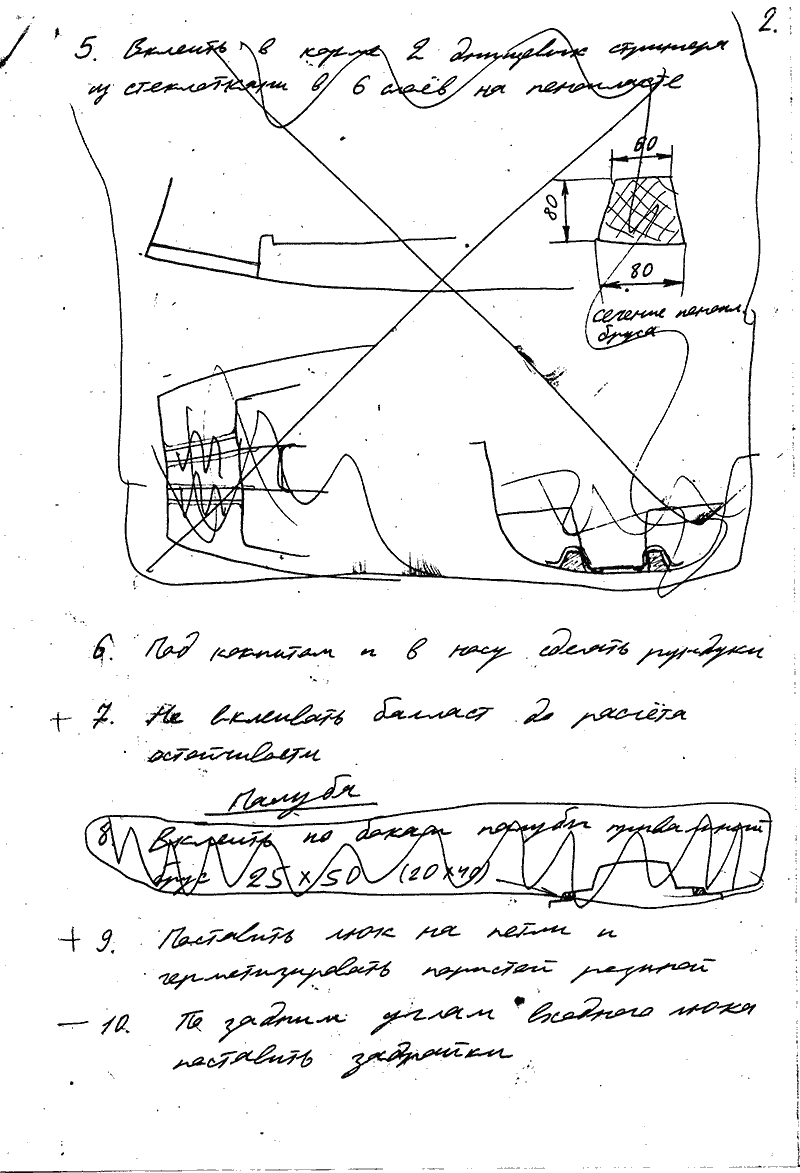 2.
5. Вклеить в корме 2 днищевых стрингера
из стеклоткани в 6 слоёв на пенопласте
60
80
80
сечение пенопл.
бруса
6. Под кокпитом и в носу сделать рундуки
+ 7. Не вклеивать балласт до расчёта
остойчивости
Палуба
8. Вклеить по бокам палубы привальный
брус 25 х 50 (20 х 40)
+ 9. Поставить люк на петли и
герметизировать пористой резиной
— 10. По задним углам входного люка
поставить задрайки